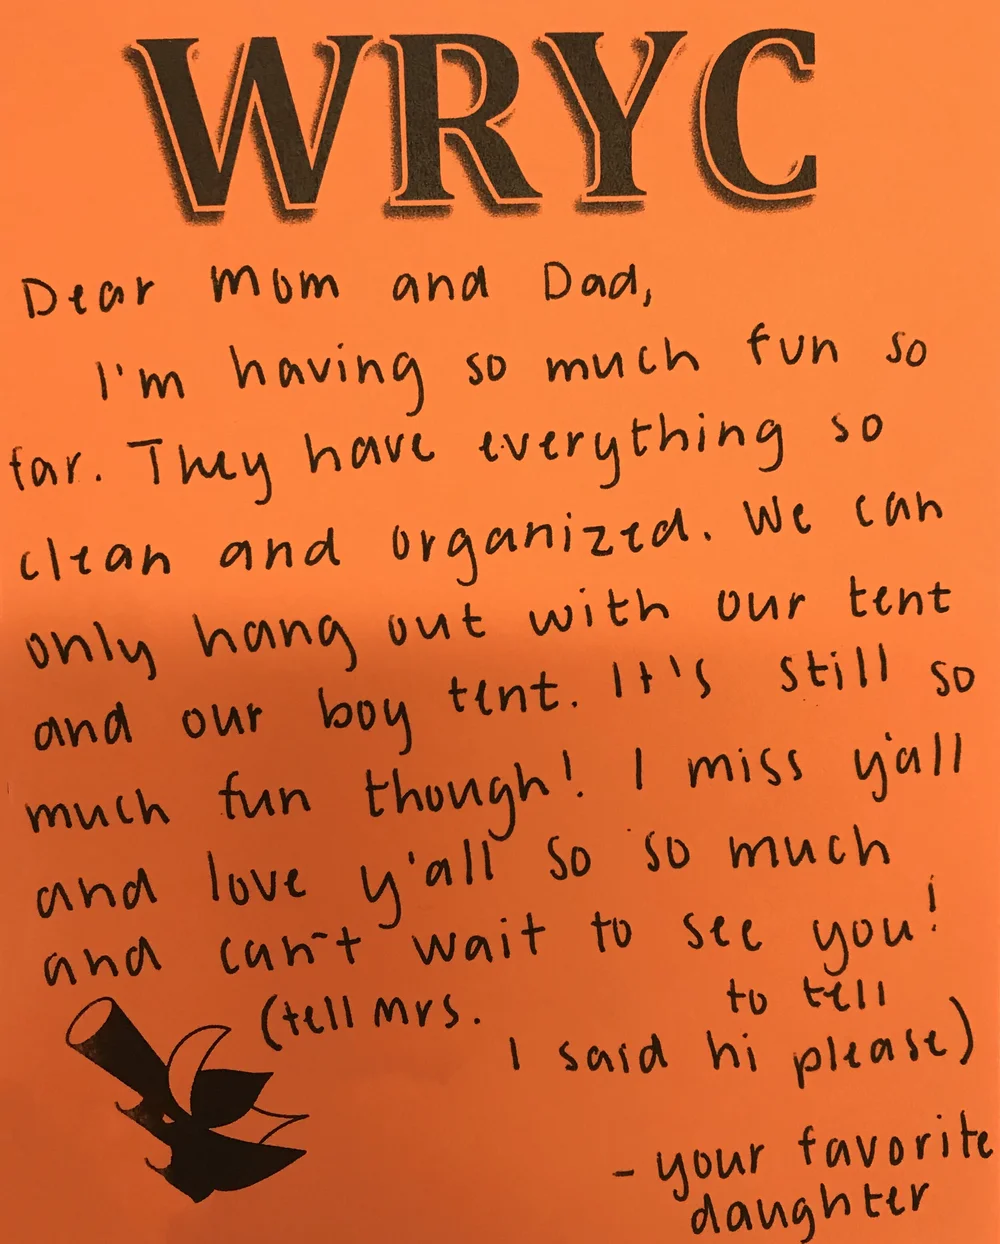 WRYC
Dear Mom and Dad,
I'm having so much fun so
far. They have everything so
clean and organized. We can
only hang out with our tent
and our boy tent. It's still so
much fun though! I miss y'all
and love y'all so so much
and can't wait to see you!
(tell Mrs. to tell
I said hi please)
- your favorite
daughter